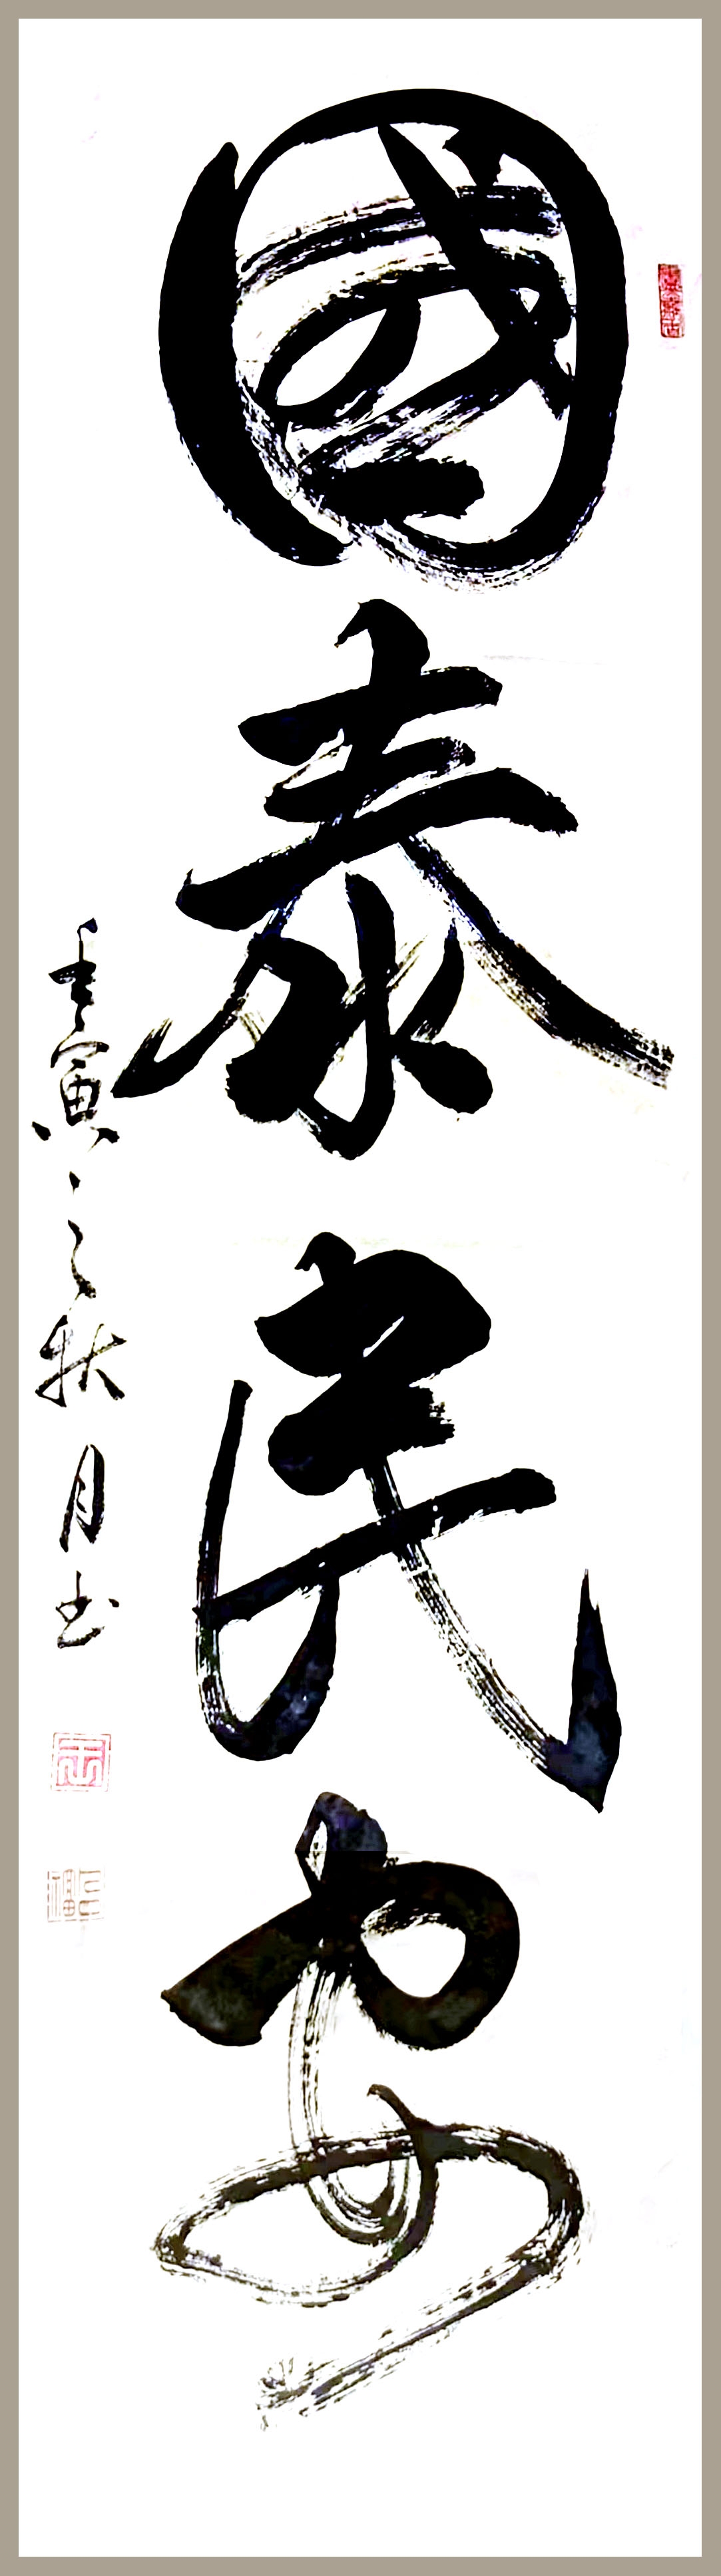 國泰民安
壬寅之秋月书